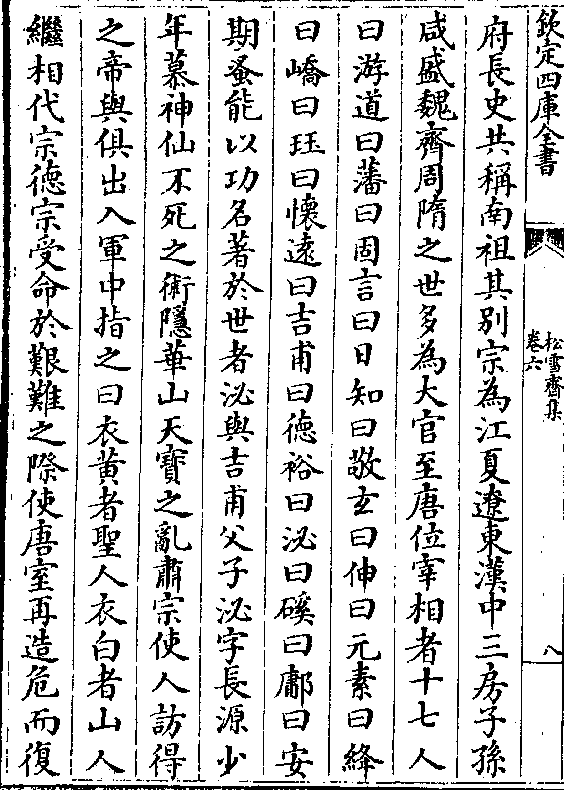 欽定四庫全書
松雪齋集
卷六
八
府長史共稱南祖其別宗為江夏遼東漢中三房子孫
咸盛魏齊周隋之世多為大官至唐位宰相者十七人
曰游道曰藩曰固言曰日知曰敬玄曰伸曰元素曰絳
曰嶠曰珏曰懷遠曰吉甫曰德裕曰泌曰磎曰鄘曰安
期蚤能以功名著於世者泌與吉甫父子泌字長源少
年慕神仙不死之術隱華山天寶之亂肅宗使人訪得
之帝與俱出入軍中指之曰衣黄者聖人衣白者山人
繼相代宗德宗受命於艱難之際使唐室再造危而復